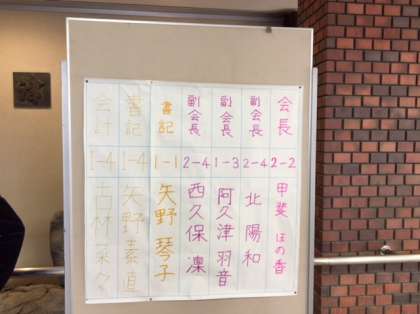 会長 2-2 甲斐 ほの香
副会長 2-4 北 陽和
副会長 1-3 阿久津 羽音
副会長 2-4 西久保 凜
書記 1-1 矢野 琴子
書記 1-4 矢野 素直
会計 1-4 古林